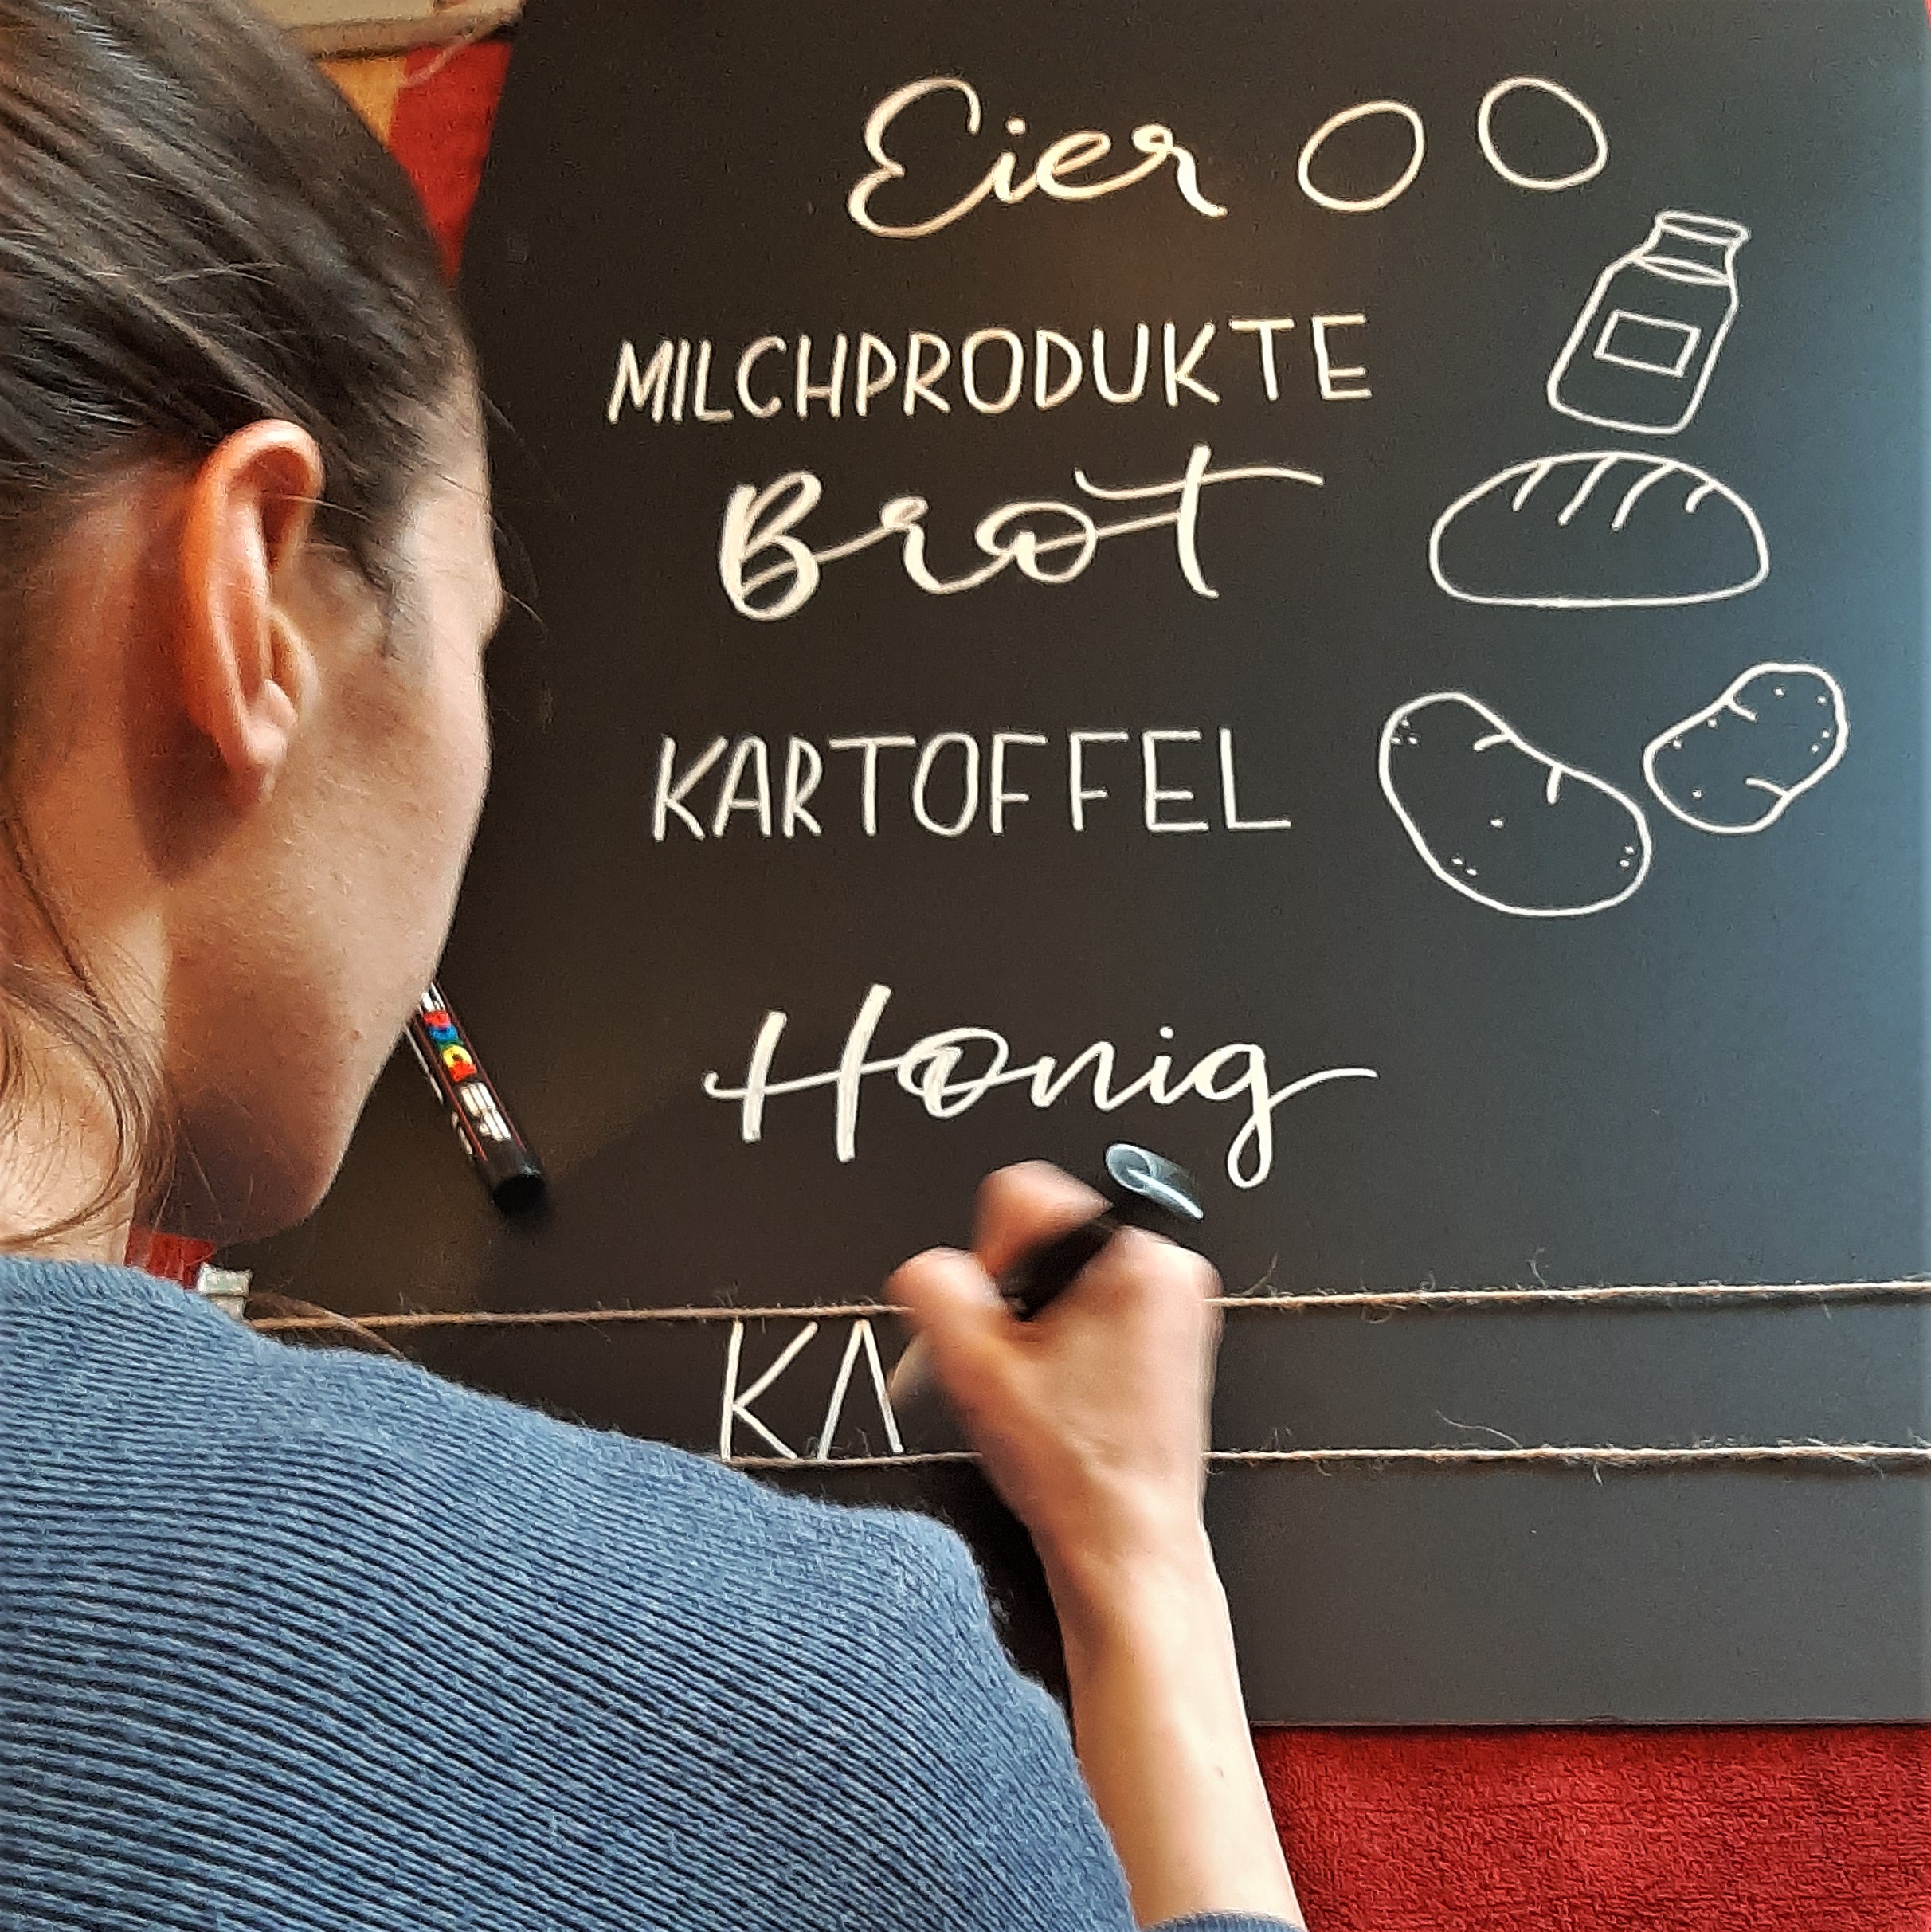 Eier
MILCHPRODUKTE
Brot
KARTOFFEL
Honig
KA